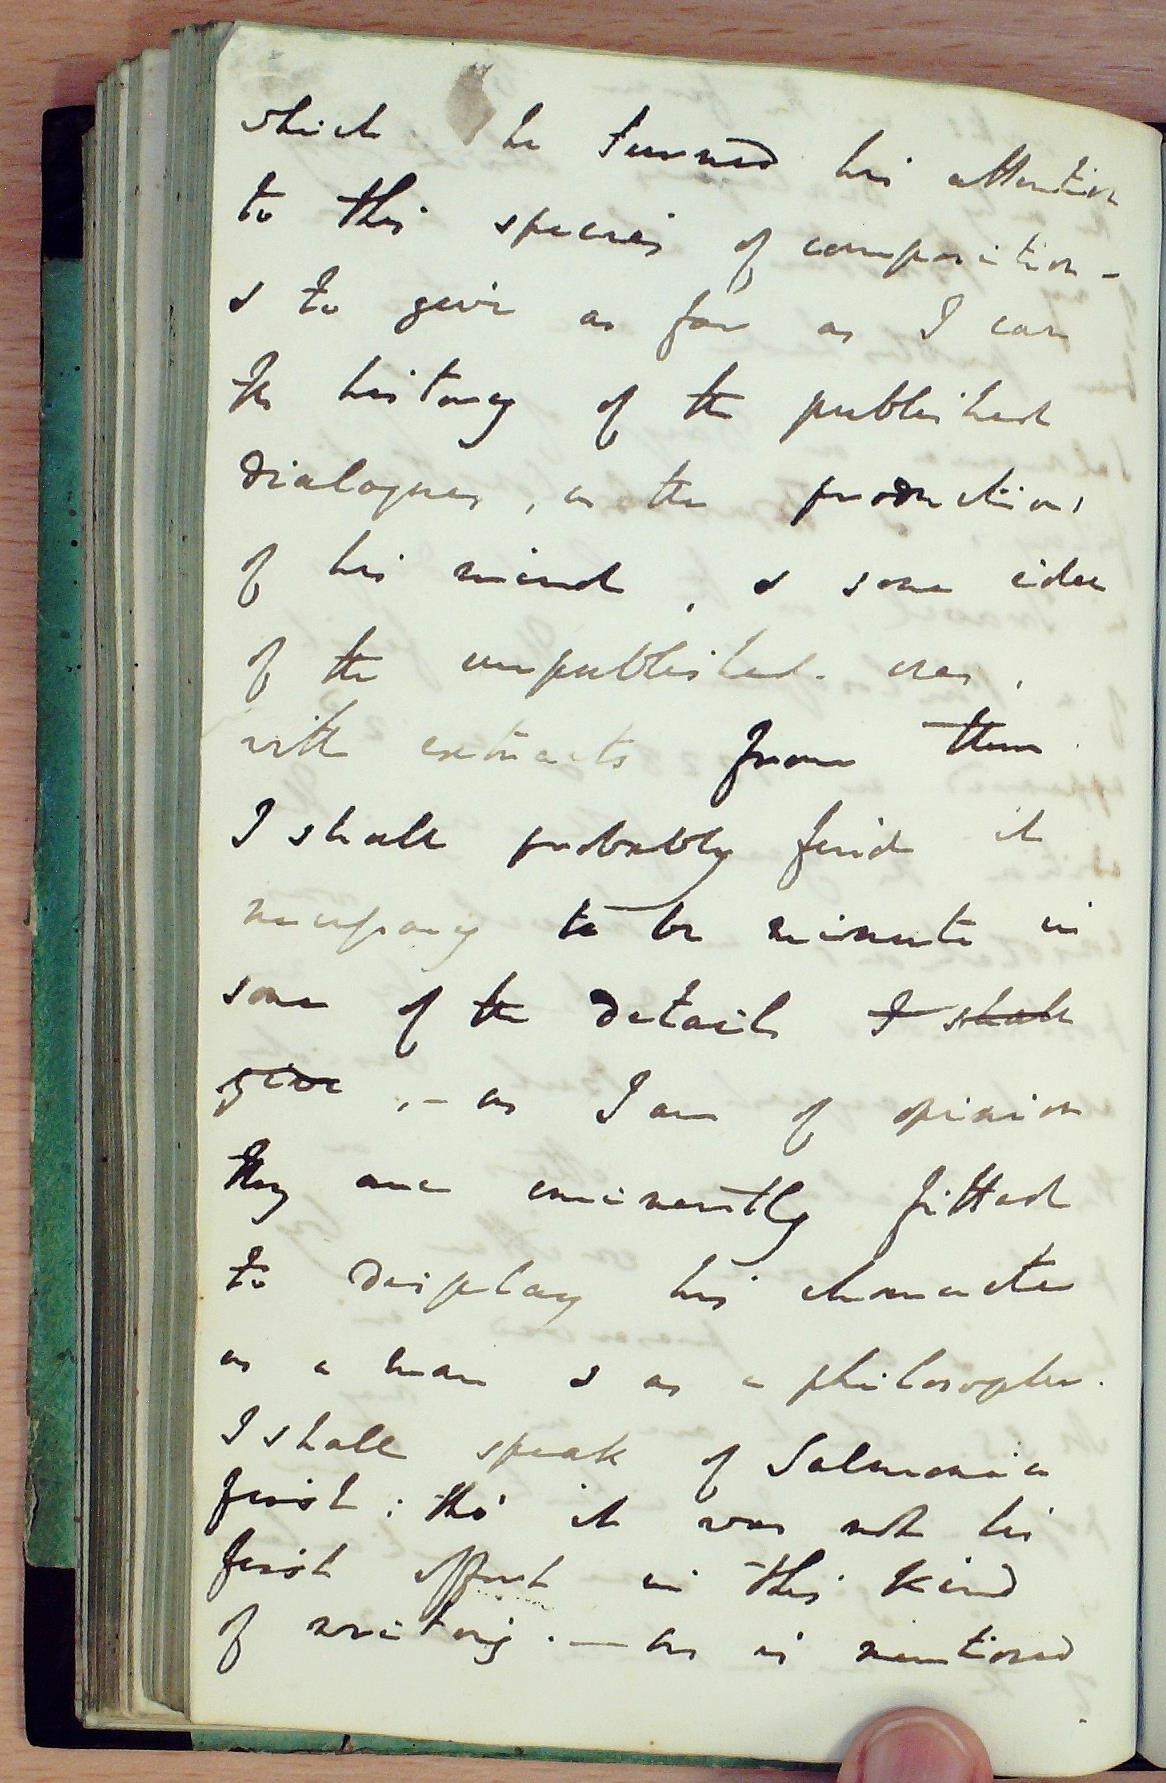 which he turned his attention
to this species of composition -
& to give as far as I can
the history of the published
Dialogues, as the productions
of his mind, & some idea
of the unpublished ones,
with extracts from them
I shall probably find it
necessary to be minute in
some of the details I shall
give, – as I am of opinion
they are eminently fitted
to display his character
as a man & as a philosopher.
I shall speak of Salmonia
first; tho' it was not his
first effort in this kind
of writing. — as is mentioned